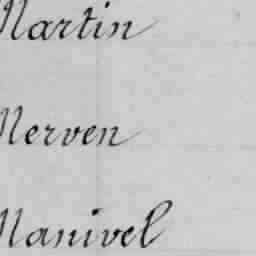 Martin
Merven
Manivel